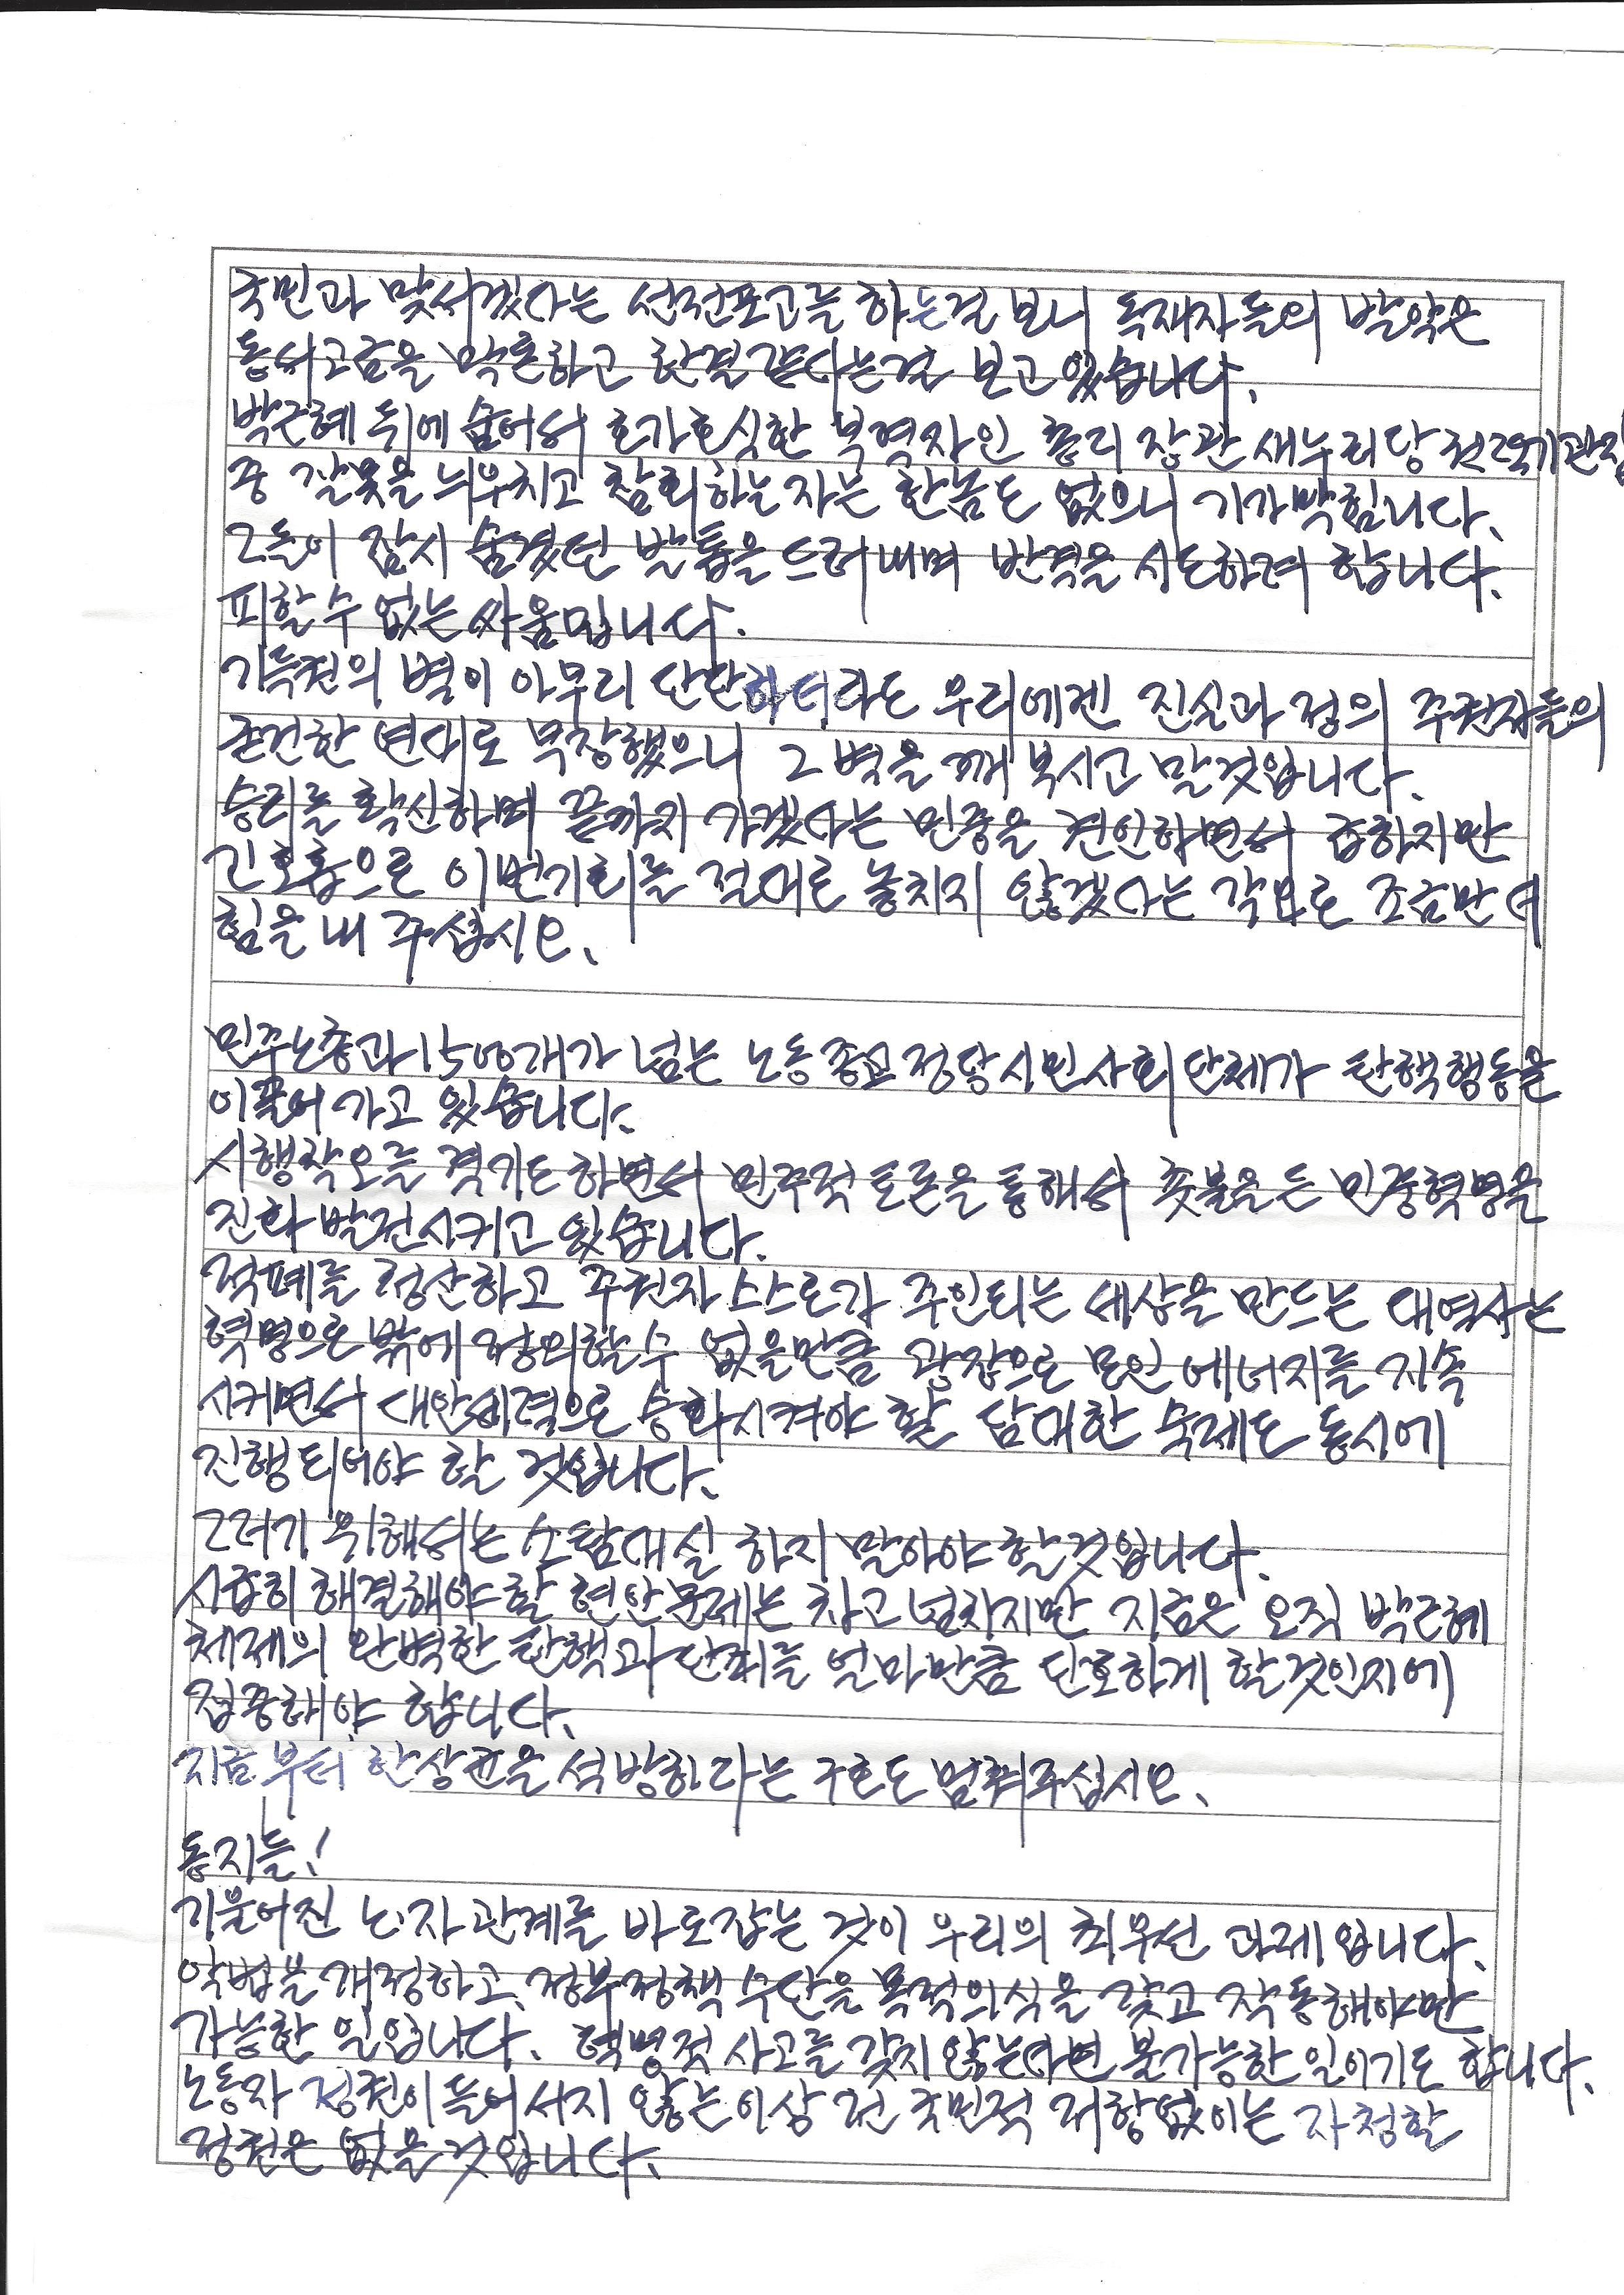 국민과 맞서겠다는 선전포고를 하는걸 보니 독재자들의 발악은
동서고금을 막론하고 한결같다는걸 보고 있습니다.
박근혜 뒤에 숨어서 호가호식한 부역자인 총리 장관 새누리당 권력기관장
중 잘못을 뉘우치고 참회하는 자는 한놈도 없으니 기가 막힙니다.
그들이 잠시 숨겼던 발톱을 드러내며 반격을 시도하려 합니다.
피할 수 없는 싸움입니다.
기득권의 벽이 아무리 단단하더라도 우리에겐 진실과 정의 주권자들의
굳건한 연대로 무장했으니 그 벽을 깨 부시고 말것입니다.
승리를 확신하며 끝까지 가겠다는 민중을 견인하면서 급하지만
긴호흡으로 이번기회를 절대로 놓치지 않겠다는 각오로 조금만 더
힘을 내 주십시오.
민주노총과 1500개가 넘는 노동 종교 정당 시민사회단체가 탄핵행동을
이끌어 가고 있습니다.
시행착오를 겪기도 하면서 민주적 토론을 통해서 촛불을 든 민중혁명을
진화 발전시키고 있습니다.
적폐를 청산하고 주권자 스스로가 주인되는 세상을 만드는 대역사는
혁명으로 밖에 정의할수 없을만큼 광장으로 모인 에너지를 지속
시키면서 대안세력으로 승화시켜야 할 담대한 숙제도 동시에
진행되어야 할 것입니다.
그러기 위해서는 소탐대실 하지 말아야 할것입니다.
시급히 해결해야 할 현안문제는 차고 넘치지만 지금은 오직 박근혜
체제의 완벽한 탄핵과 단죄를 얼마만큼 단호하게 할것인지에
집중해야 합니다.
지금부터 한상균을 석방하라는 구호도 멈춰주십시오.
동지들!
기울어진 노자관계를 바로잡는 것이 우리의 최우선 과제입니다.
악법을 개정하고, 정부정책 수단을 목적의식을 갖고 작동해야만
가능한 일입니다. 혁명적 사고를 갖지 않는다면 불가능한 일이기도 합니다.
노동자 정권이 들어서지 않는 이상 전 국민적 저항없이는 자청할
정권은 없을 것입니다.